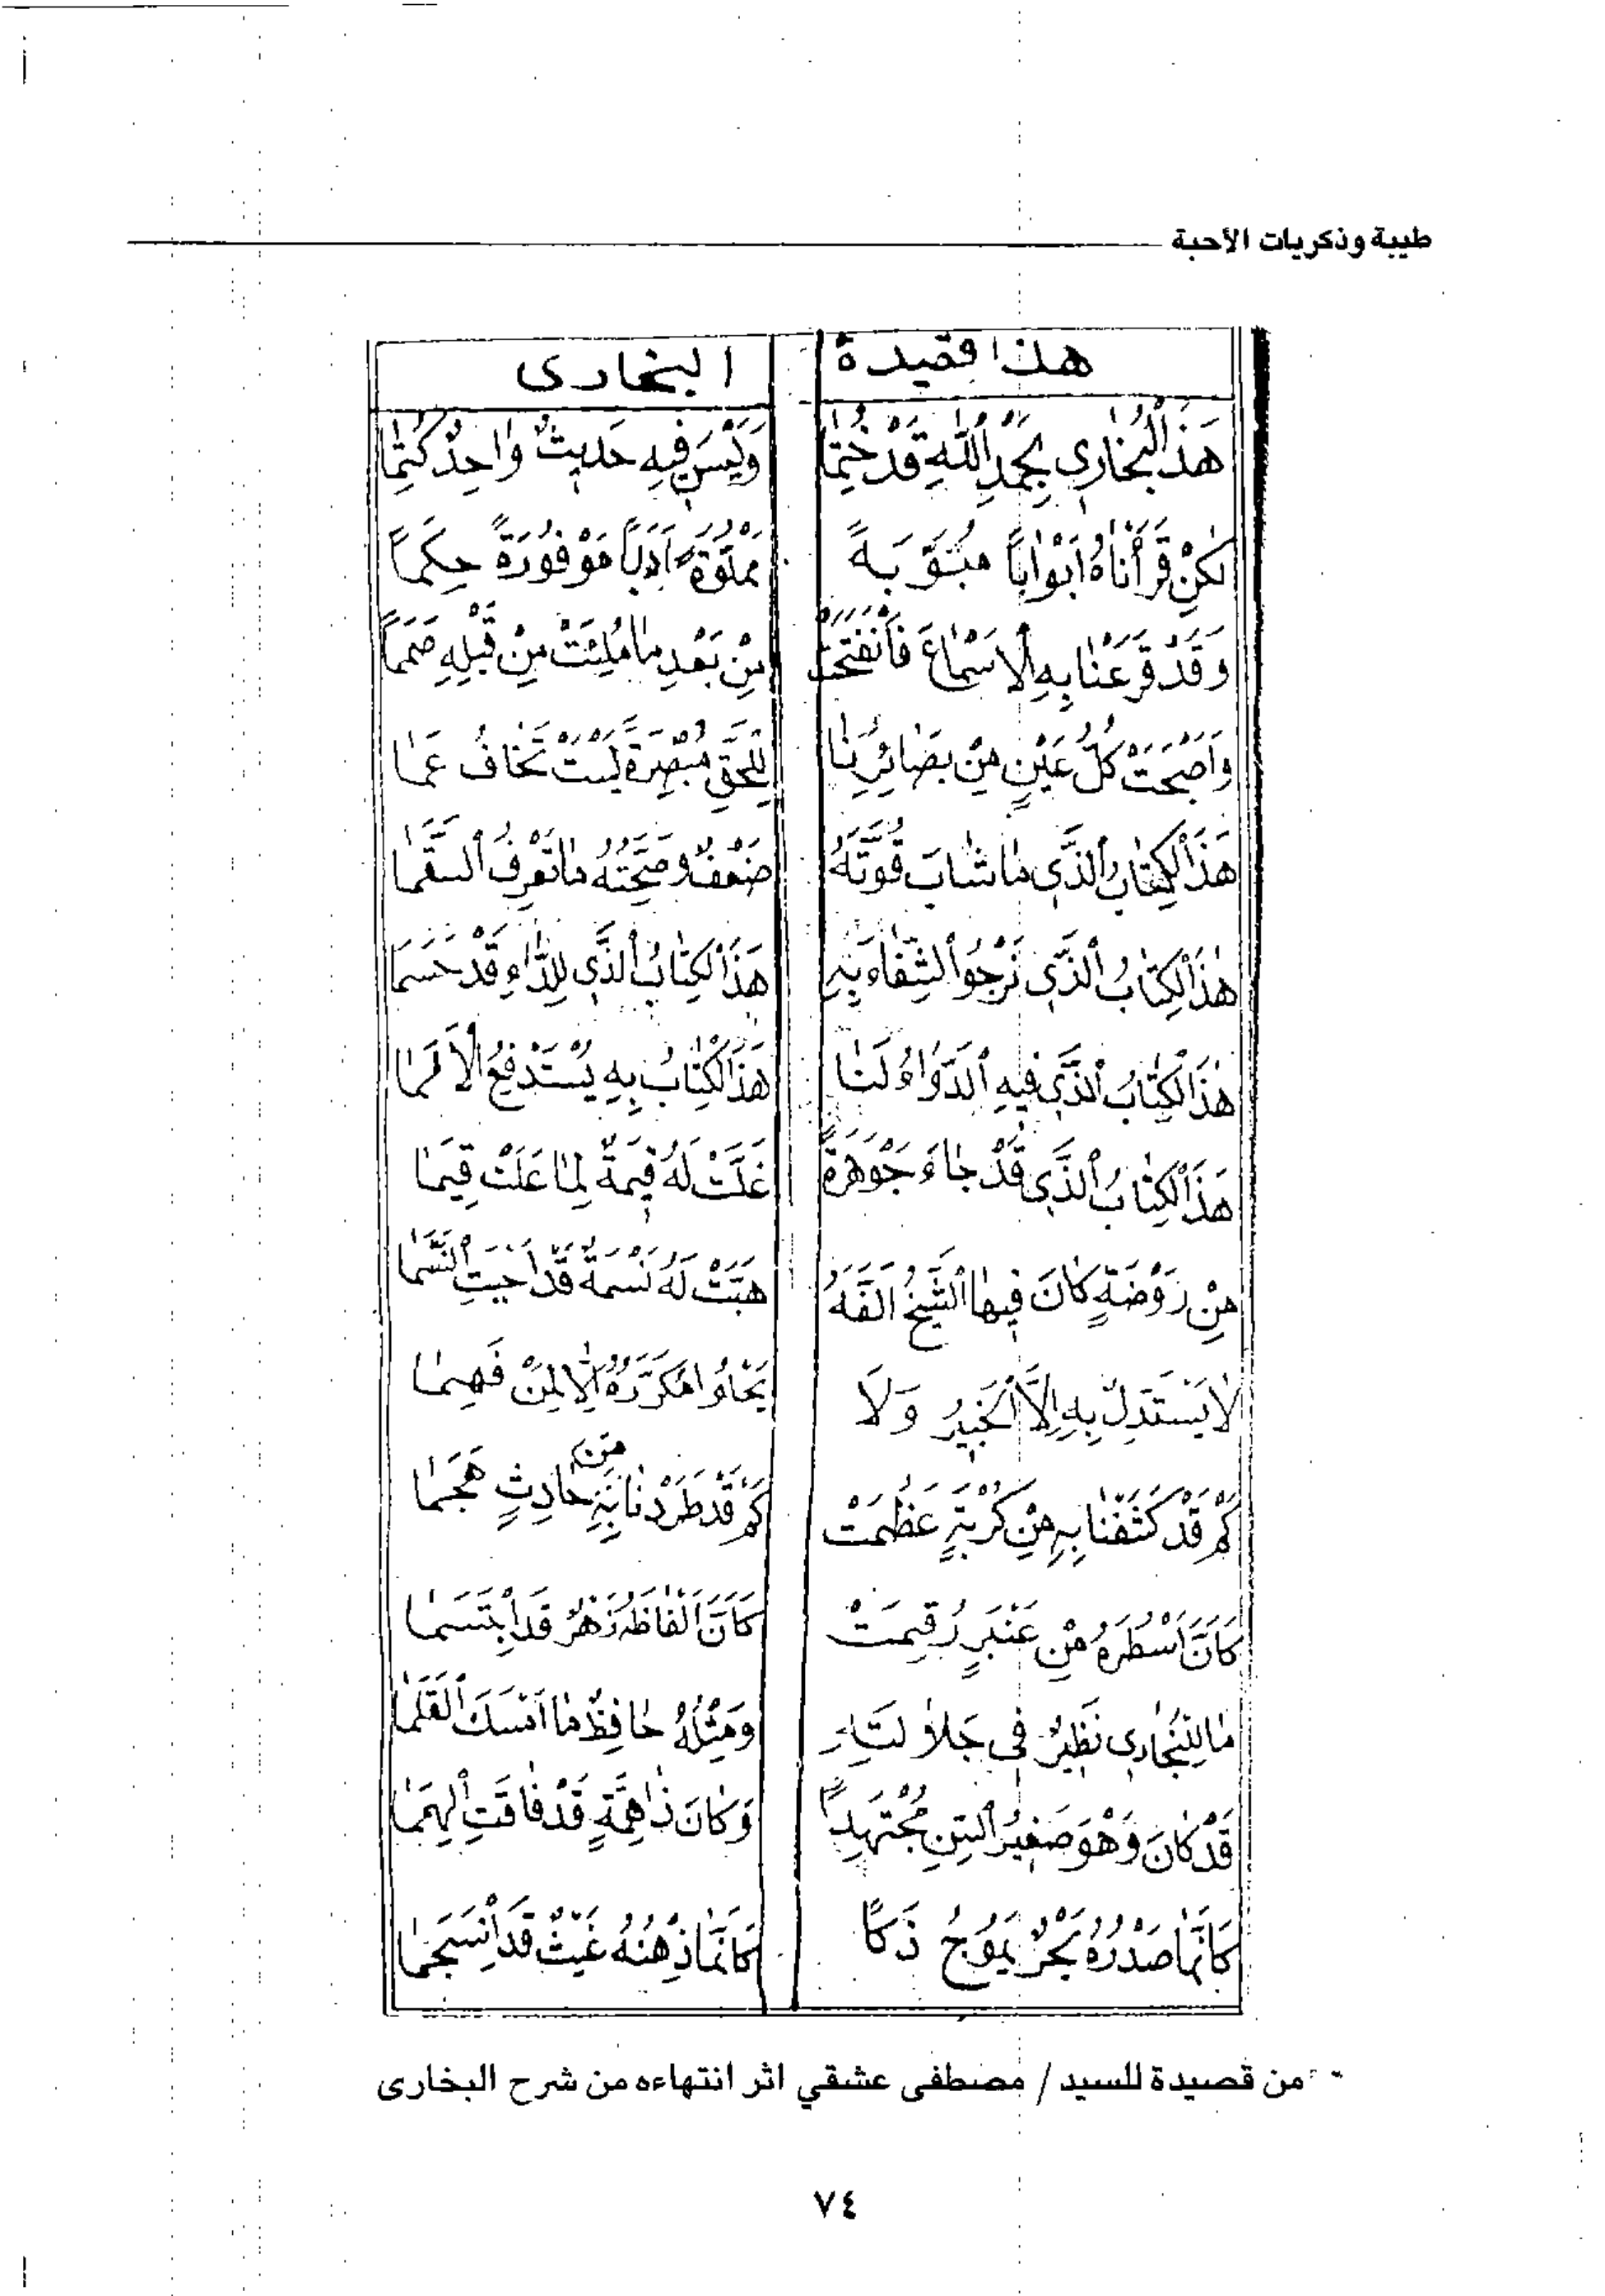 طيبة وذكريات الأحبة
هذا قصيدة البخارى
هَذَا الْبُخَارِي بِحَمْدِ اللّٰهِ قَدْ خُتِمَا وَلَيْسَ فِيهِ حَدِيثٌ وَاحِدٌ كُتِمَا
لٰكِنْ قَرَأْنَاهُ اَبْوَاباً مُبَوَّبَةً مَمْلُوَّةً اَدَباً مَوْفُورَةً حِكَماً
وَقَدْ قَرَعْنَا بِهِ الْاَسْمَاعَ فَانْفَتَحَتْ مِنْ بَعْدِ مَا مُلِئَتْ مِنْ قَبْلِهِ صَمَماً
وَاَصْبَحَتْ كُلُّ عَيْنٍ مِنْ بَصَائِرِنَا لِلْحَقِّ مُبْصِرَةً لَيْسَتْ تَخَافُ عَمَا
هَذَا الْكِتَابُ الَّذِي مَا شَابَ قُوَّتَهُ ضَعْفٌ وَصِحَّتُهُ مَا تَعْرِفُ السَّقَمَا
هٰذَا الْكِتَابُ الَّذِي نَرْجُوا الشِّفَاءَ بِهِ هَذَا الْكِتَابُ الَّذِي لِلدَّاءِ قَدْ حَسَمَا
هٰذَا الْكِتَابُ الَّذِي فِيهِ الدَّوَاءُ لَنَا هَذَا الْكِتَابُ بِهِ يُسْتَدْفِعُ الْاَلَمَا
هَذَا الْكِتَابُ الَّذِي قَدْ جَاءَ جَوْهَرَةً غَلَتْ لَهُ قِيمَةٌ لِمَا عَلَتْ قِيَمَا
مِنْ رَوْضَةٍ كَانَ فِيهَا الشَّيْخُ اَلَّفَهُ هَبَّتْ لَهُ نَسْمَةٌ قَدْ اَحْيَتِ النَّسَمَا
لَا يَسْتَدِلُّ بِهِ اِلَّا الْخَبِيرُ وَلَا يَحْلُوا مُكَرَّرُهُ اِلَّا لِمَنْ فَهِمَا
كَمْ قَدْ كَشَفْنَا بِهِ مِنْ كُرْبَةٍ عَظُمَتْ كَمْ قَدْ طَرَدْنَا بِهِ مِنْ حَادِثٍ هَجَمَا
كَاَنَّ اَسْطُرَهُ مِنْ عَنْبَرٍ رُقِمَتْ كَاَنَّ اَلْفَاظَهُ زَهْرٌ قَدِ ابْتَسَمَا
مَا لِلْبُخَارِى نَظِيرٌ فِى جَلَالَتِهِ وَمِثْلُهُ حَافِظٌ مَا اَمْسَكَ الْقَلَمَا
قَدْ كَانَ وَهْوَ صَغِيرُ السِّنِ مُجْتَهِداً وَكَانَ ذَا هِمَّةٍ قَدْ فَاقَتِ الْهِمَمَا
كَاَنَّمَا صَدْرُهُ بَحْرٌ يَمُوجُ ذَكَاً كَاَنَّمَا ذِهْنُهُ غَيْثٌ قَدِ انْسَجَمَا
- من قصيدة للسيد / مصطفى عشقي اثر انتهاءه من شرح البخارى
٧٤